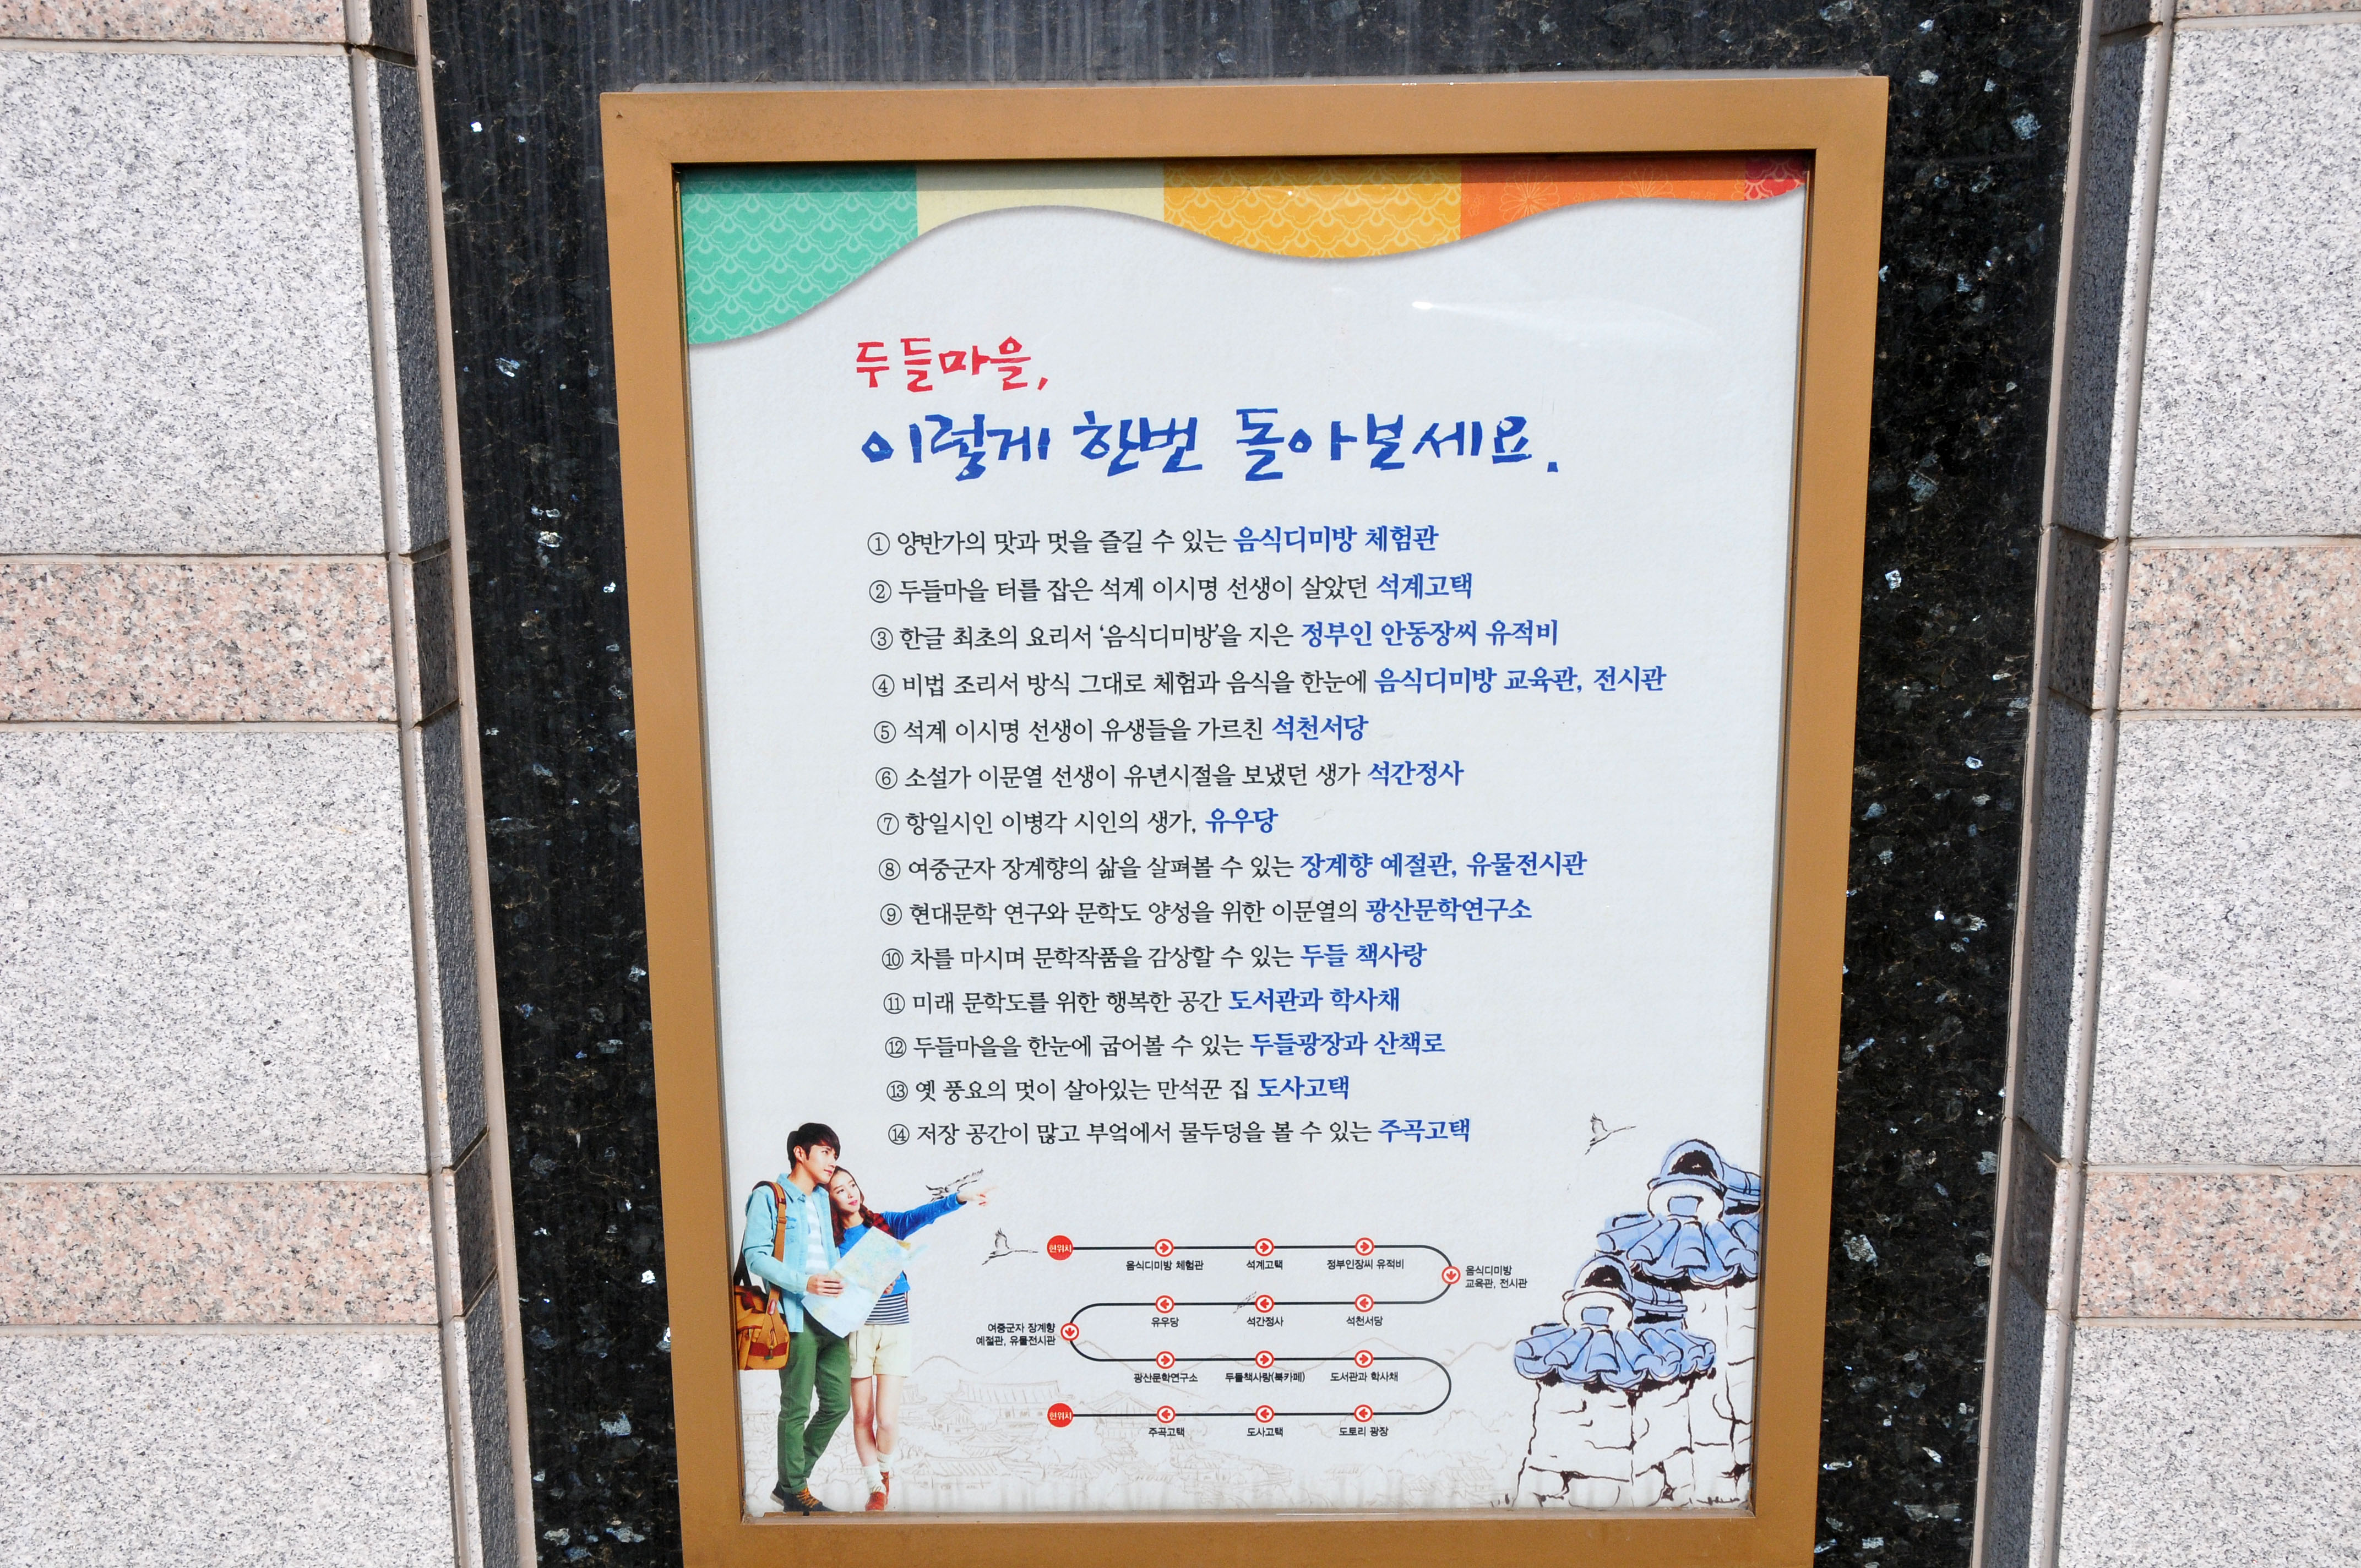 두들마을,
이렇게 한번 돌아보세요.
① 양반가의 맛과 멋을 즐길 수 있는 음식디미방 체험관
② 두들마을 터를 잡은 석계 이시명 선생이 살았던 석계고택
③ 한글 최초의 요리서 '음식디미방'을 지은 정부인 안동장씨 유적비
④ 비법 조리서 방식 그대로 체험과 음식을 한눈에 음식디미방 교육관, 전시관
⑤ 석계 이시명 선생이 유생들을 가르친 석천서당
⑥ 소설가 이문열 선생이 유년시절을 보냈던 생가 석간정사
⑦ 항일시인 이병각 시인의 생가, 유우당
⑧ 여중군자 장계향의 삶을 살펴볼 수 있는 장계향 예절관, 유물전시관
⑨ 현대문학 연구와 문학도 양성을 위한 이문열의 광산문학연구소
⑩ 차를 마시며 문학작품을 감상할 수 있는 두들 책사랑
⑪ 미래 문학도를 위한 행복한 공간 도서관과 학사채
⑫ 두들마을을 한눈에 굽어볼 수 있는 두들광장과 산책로
⑬ 옛 풍요의 멋이 살아있는 만석꾼 집 도사고택
⑭ 저장 공간이 많고 부엌에서 물두덩을 볼 수 있는 주곡고택
현위치
음식디미방 체험관
석계고택
정부인장씨 유적비
음식디미방
교육관, 전시관
유우당
석간정사
석천서당
여중군자 장계향
예절관, 유물전시관
광산문학연구소
두들책사랑(북카페)
도서관과 학사채
현위치
주곡고택
도사고택
도토리 광장